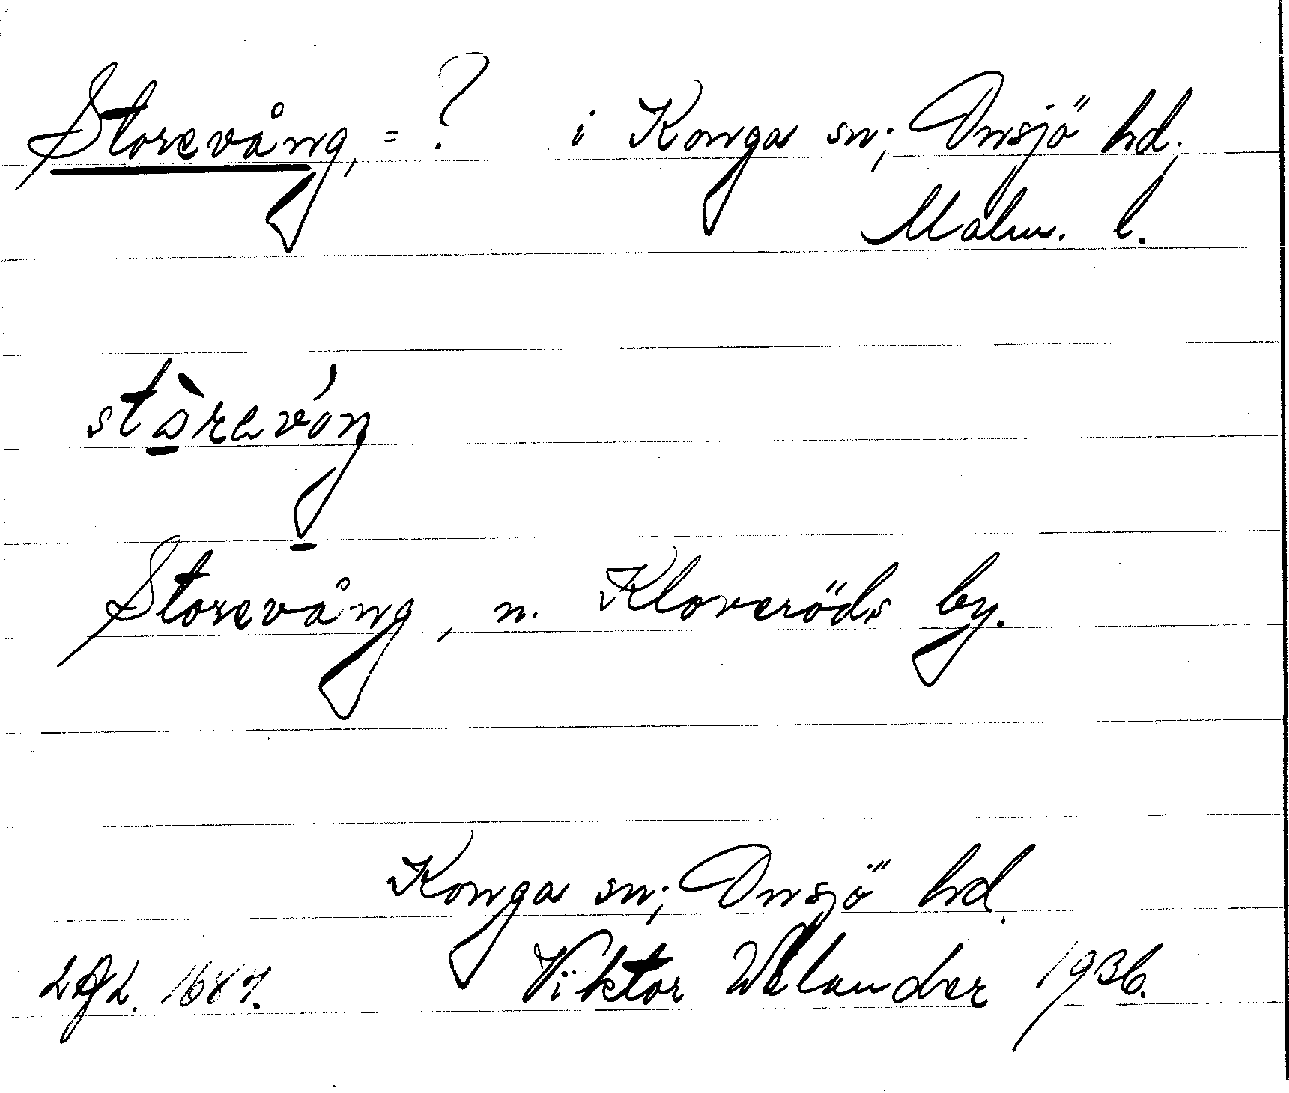 Storevång, = ? i Konga sn; Onsjö hd;
Malm. l.
stòrevóŋ
Storevång, n. Kloveröds by.
Konga sn; Onsjö hd.
Viktor Welander 1936.